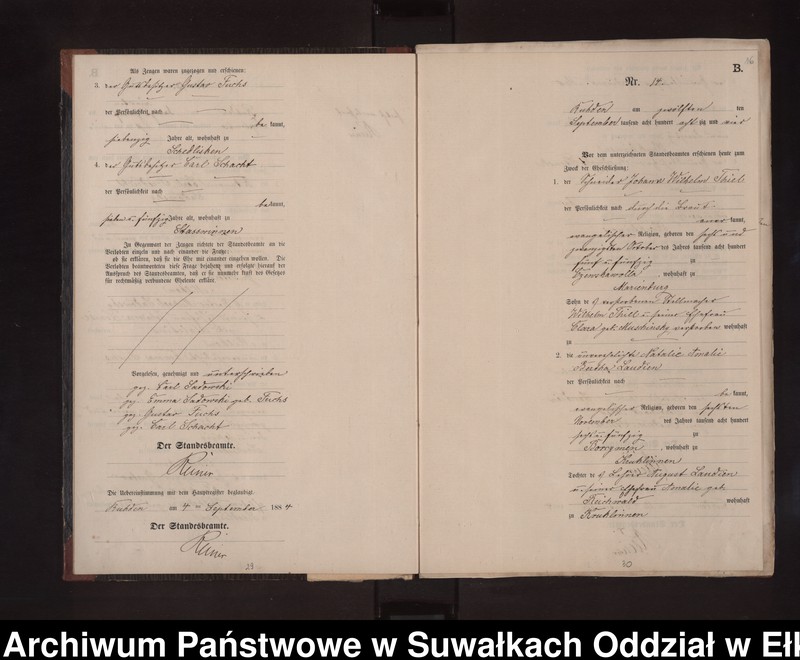 Als Zeugen waren zugezogen und erschienen:
3. der Gutsbesitzer Gustav Fuchs
der Persönlichkeit nach
be kannt,
siebenzig Jahre alt, wohnhaft zu
Schedlisken
4. der Gutsbesitzer Carl Schacht
der Persönlichkeit nach
be kannt,
sieben u. fünfzig Jahre alt, wohnhaft zu
Staswinnen
In Gegenwart der Zeugen richtete der Standesbeamte an die
Verlobten einzeln und nach einander die Frage:
ob sie erklären, daß sie die Ehe mit einander eingehen wollen. Die
Verlobten beantworteten diese Frage bejahend und erfolgte hierauf der
Ausspruch des Standesbeamten, daß er sie nunmehr kraft des Gesetzes
für rechtmäßig verbundene Eheleute erkläre.
Vorgelesen, genehmigt und unterschrieben
gez. Carl Sadowski
gez. Emma Sadowski geb. Fuchs
gez. Gustav Fuchs
gez. Carl Schacht
Der Standesbeamte.
Die Uebereinstimmung mit dem Hauptregister beglaubigt.
am 4 ten September 1884
Der Standesbeamte.
29
B.
Nr. 14.
am zwölften ten
September tausend acht hundert acht zig und vier
Vor dem unterzeichneten Standesbeamten erschienen heute zum
Zweck der Eheschließung:
1. der Schneider Johann Wilhelm Thiel
der Persönlichkeit nach durch die Braut
aner kannt,
evangelischer Religion, geboren den sechs und
zwanzigsten October des Jahres tausend acht hundert
fünf u. fünfzig zu
, wohnhaft zu
Marienburg
Sohn de s verstorbenen
Wilhelm Thiel u. seiner Ehefrau
Clara geb. verstorben wohnhaft
zu
2. die unverehelichte Natalie Amalie
Bertha Laudien
der Persönlichkeit nach
be kannt,
evangelischer Religion, geboren den sechsten
November des Jahres tausend acht hundert
sechs u. fünfzig zu
Borrymen , wohnhaft zu
Kruklinnen
Tochter de s August Laudien
u. seiner Ehefrau Amalie geb.
Reichwald wohnhaft
zu Kruklinnen
30
Archiwum Państwowe w Suwałkach Oddział w Ełk